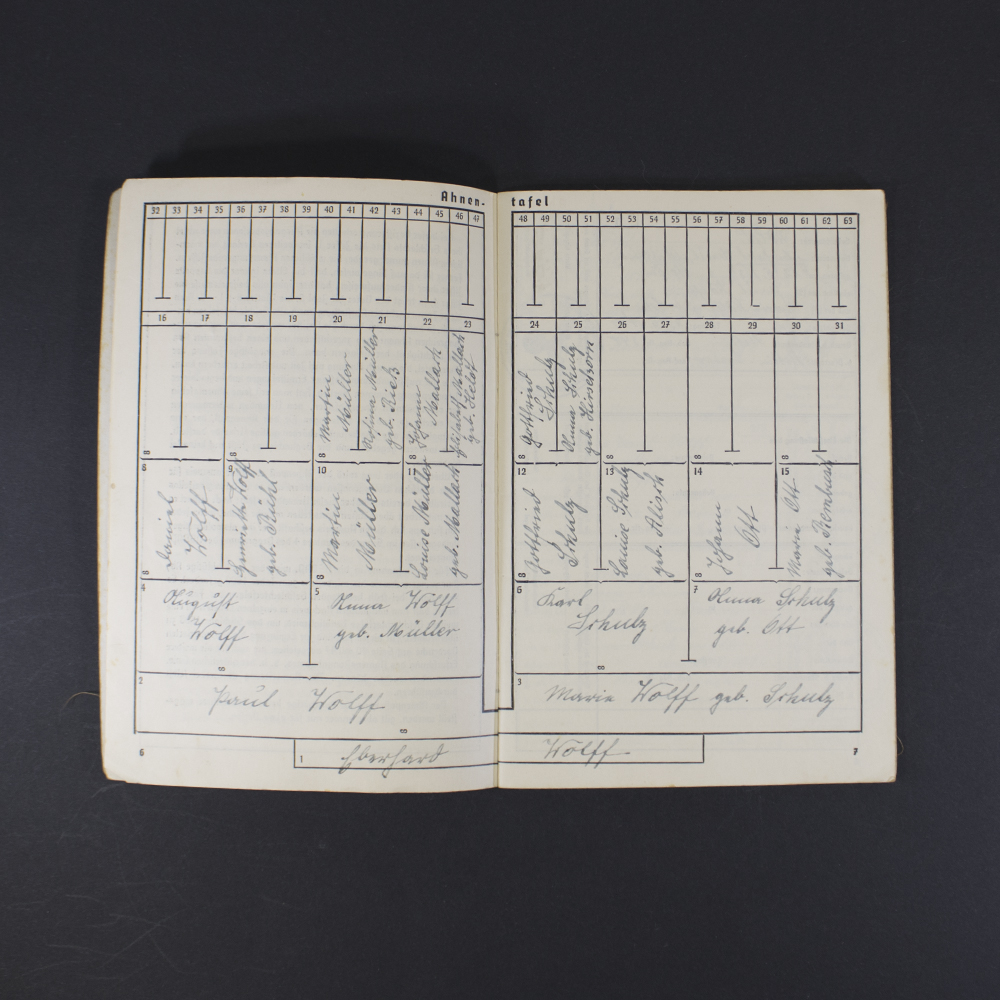 Ahnen-tafel
32 33 34 35 36 37 38 39 40 41 42 43 44 45 46 47
48 49 50 51 52 53 54 55 56 57 58 59 60 61 62 63
16 17 18 19 20 21 22 23
24 25 26 27 28 29 30 31
Martin
Müller
Müller
geb.
Johann
Mallach
Mallach
geb.
Gottfried
Schulz
Anna Schulz
geb. Hirsekorn
8 9 10 11
12 13 14 15
Daniel
Wolff
Henriette Wolff
geb. Rühl
Martin
Müller
Louise Müller
geb. Mallach
Gottfried
Schulz
Louise Schulz
geb. Alisch
Johann
Ott
Marie Ott
geb.
4
August
Wolff
5
Anna Wolff
geb. Müller
6
Karl
Schulz
7
Anna Schulz
geb. Ott
2
Paul Wolff
3
Marie Wolff geb. Schulz
1
Eberhard Wolff
6
7